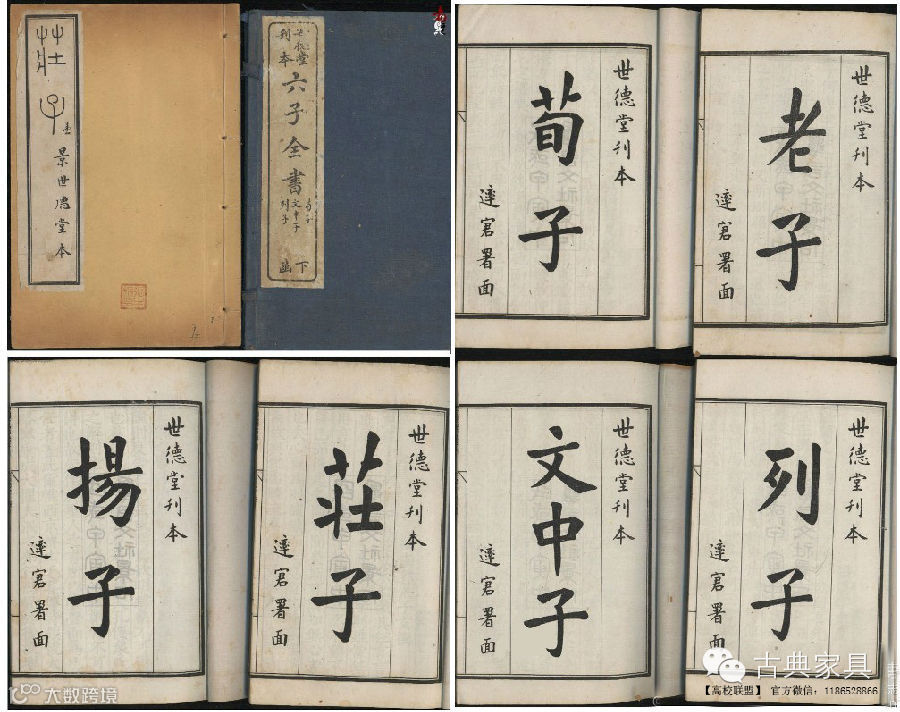 莊子
景世德堂本
世德堂
刊本
六子全書
荀子
文中子
列子
下函
世德堂刊本
荀子
達宭署面
世德堂刊本
老子
達宭署面
世德堂刊本
揚子
達宭署面
世德堂刊本
莊子
達宭署面
世德堂刊本
文中子
達宭署面
世德堂刊本
列子
達宭署面
古典家具
【高校联盟】 官方微信：1186528866
大数跨境